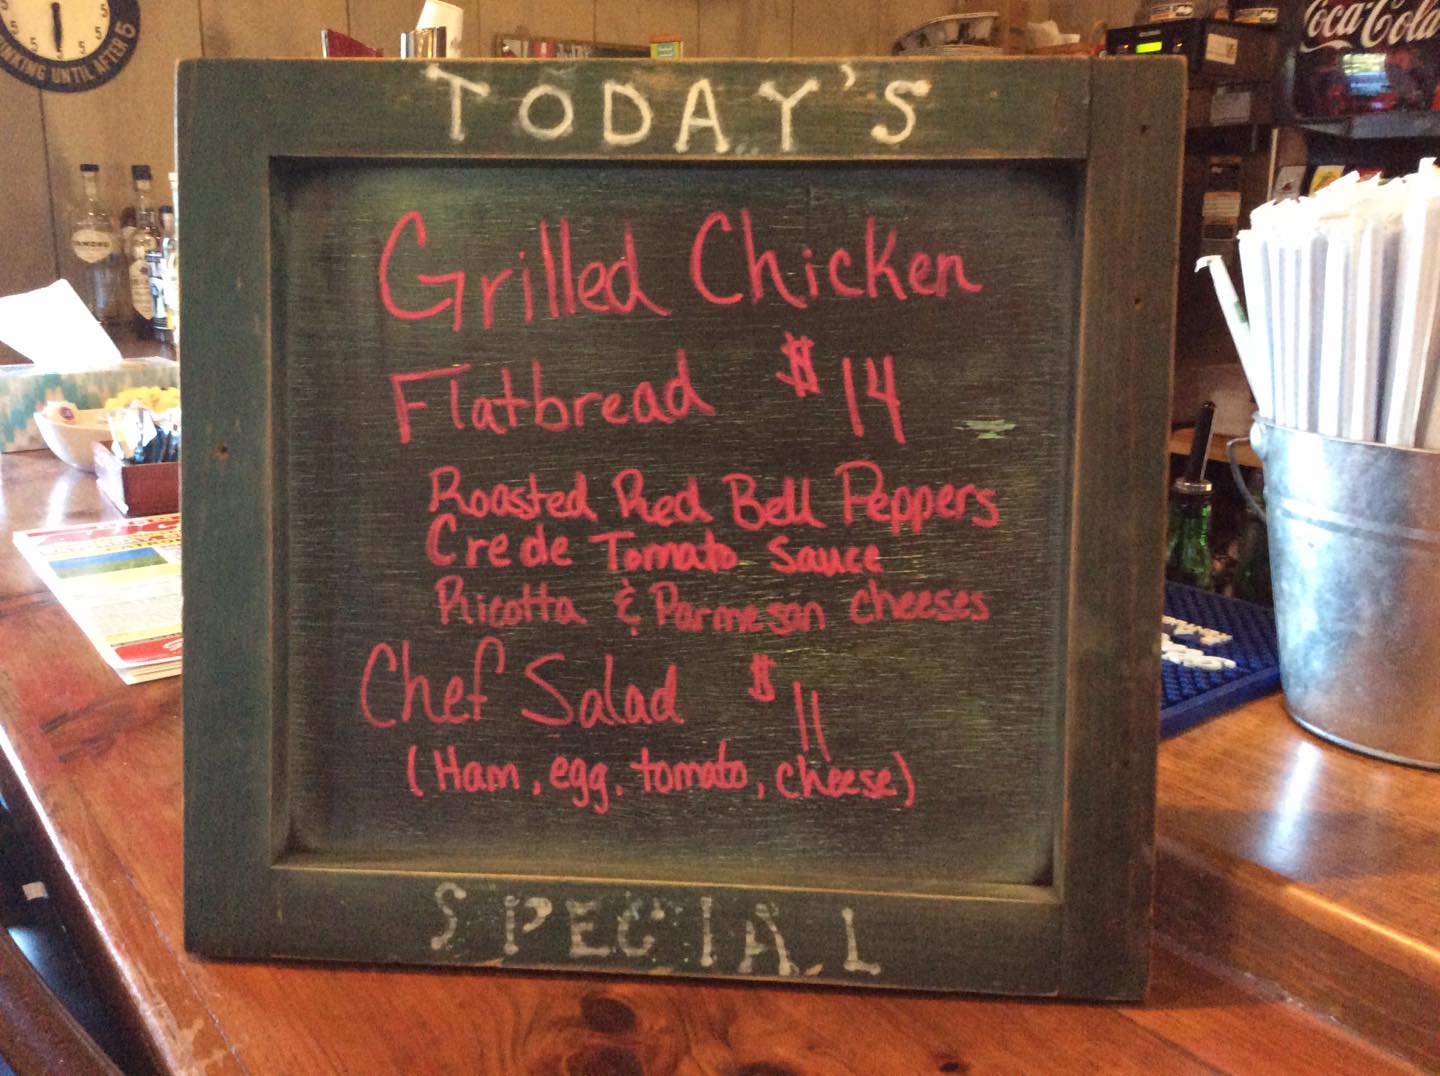 TODAY'S
Grilled Chicken
Flatbread $14
Roasted Red Bell Peppers
Crede Tomato Sauce
Ricotta & Parmesan cheeses
Chef Salad $11
(Ham, egg, tomato, cheese)
SPECIAL
Coca-Cola
5 5 5 5
UNTIL AFTER 5